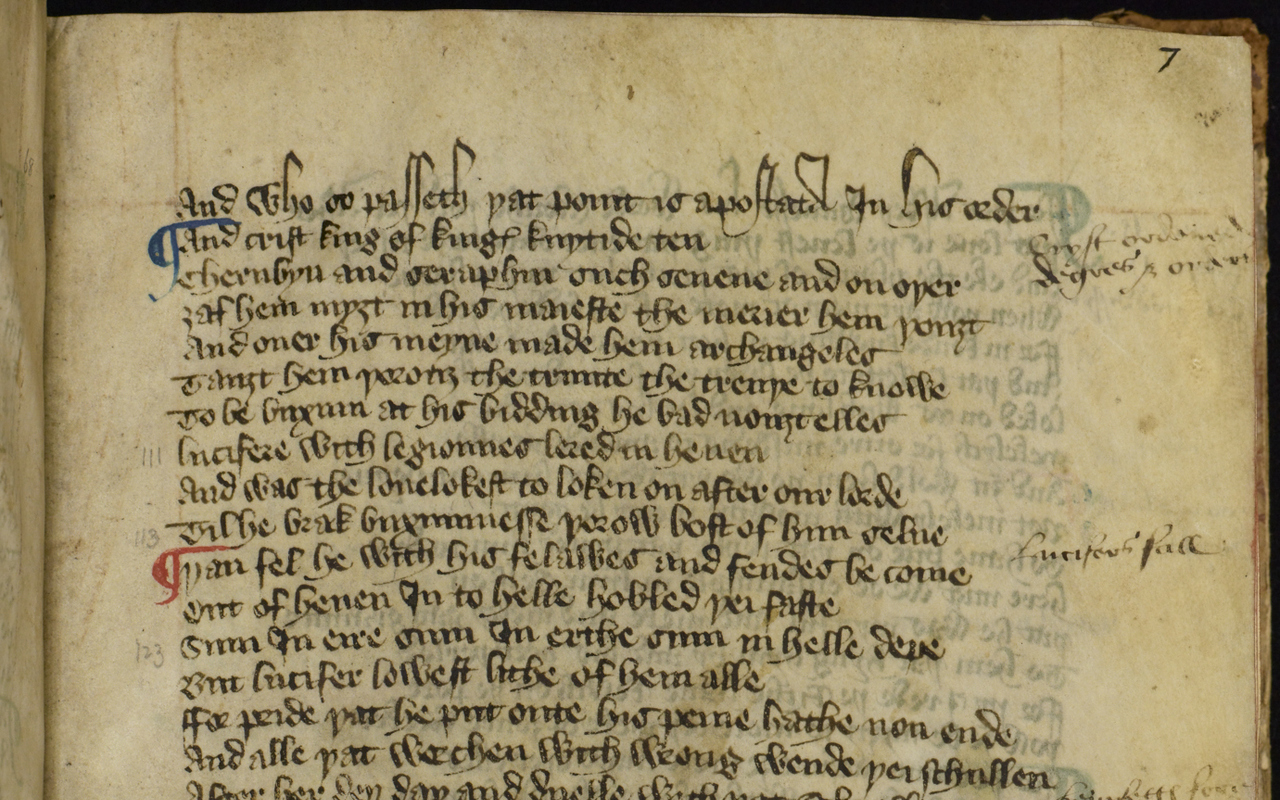 7
And who so passeth yat point is apostata In his order
And crist king of kinges knytide ten
Cherubyn and seraphin such seuene and on oyer
Ȝaf hem myȝt in his maieste the merier hem youȝt
And ouer his meyne made hem archangeles
Tauȝt hem yorouȝ the trinite the treuye to knowe
To be buxum at his bidding he bad nouȝt elles
lucifere with legionnes lered in heuen
And was the louelokest to loken on after our lorde
Til he brak buxumnesse yorow bost of him selue
yan fel he with his felawes and fendes be come
Out of heuen In to helle hobled yei faste
Sum In eire sum In erthe sum in helle depe
But lucifer lowest lithe of hem alle
ffor pride yat he put oute his peine hathe non ende
And alle yat werchen with wrong wende yei schullen
After her dey day and duelle with yat
Crist ordeined
degres & orders
Lucifers fall
111
113
123